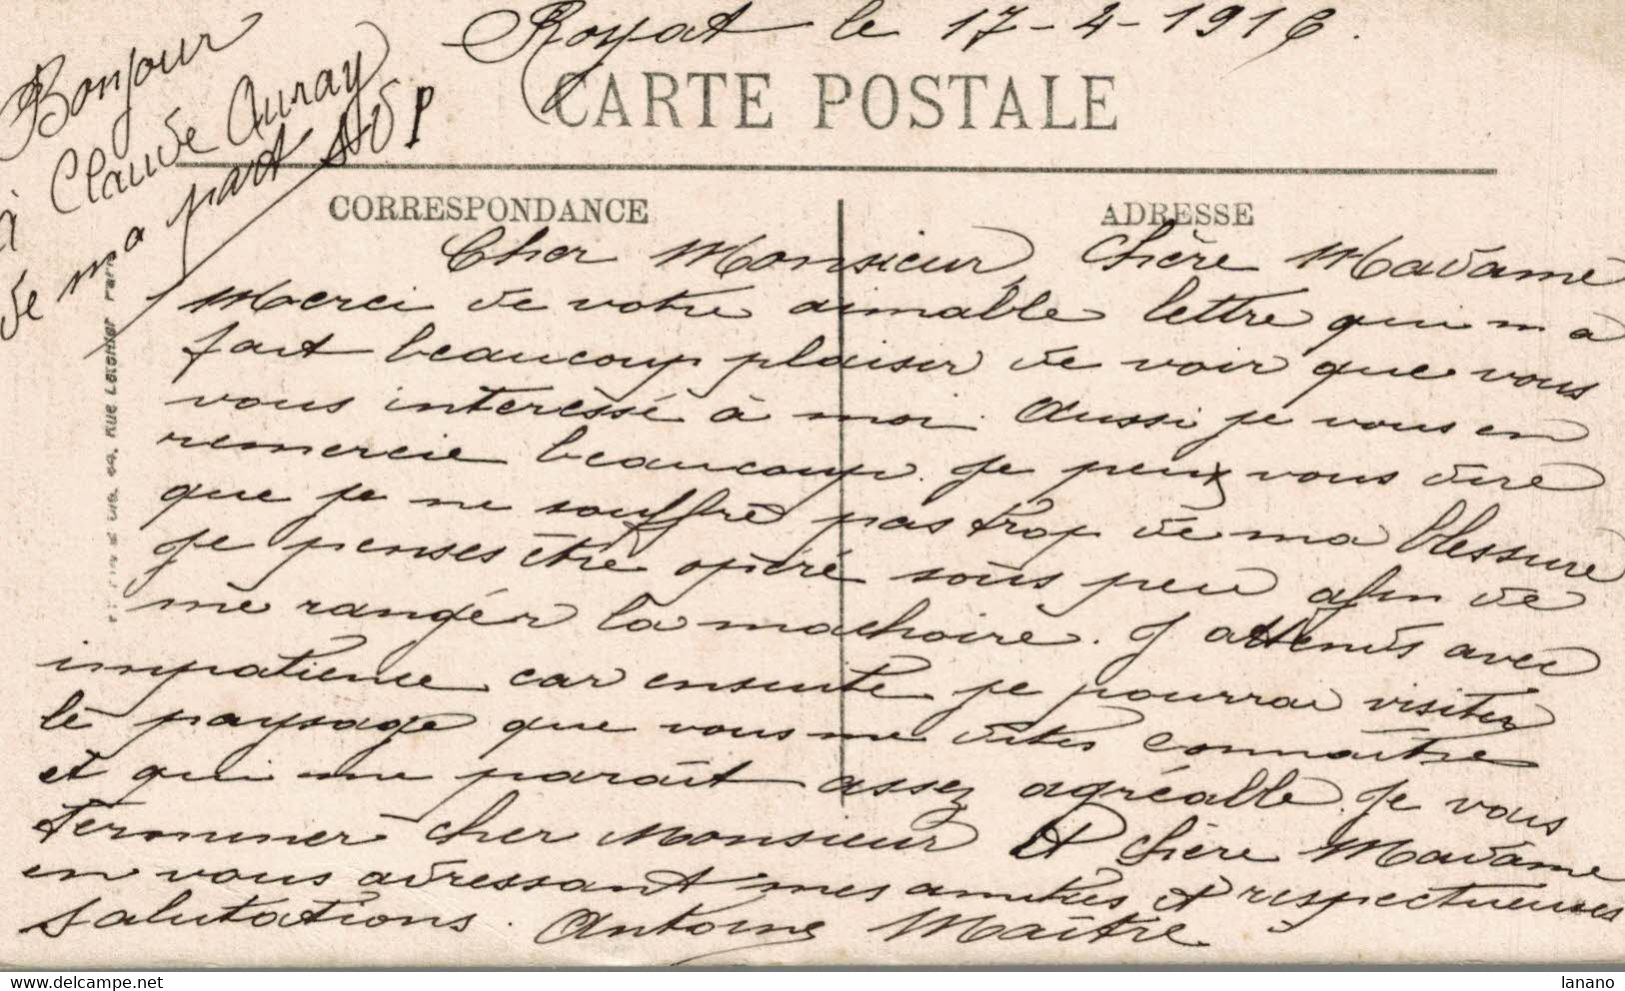 Royat le 17-4-1916.
Bonjour
à Claude Auray
de ma part SVP
CARTE POSTALE
CORRESPONDANCE
ADRESSE
Cher Monsieur, Chère Madame
Merci de votre aimable lettre qui m a
fait beaucoup plaisir de voir que vous
vous interéssé à moi. Aussi je vous en
remercie beaucoup. Je peux vous dire
que je ne souffre pas trop de ma blessure
Je penses être opéré sous peu afin de
me ranger la machoire. J attends avec
impatience car ensuite je pourrai visiter
le paysage que vous me dites connaître
et qui me parait assez agréable. Je vous
terminer cher Monsieur et chère Madame
en vous adressant mes amitiés et respectueuses
salutations. Antoine Maître
Rue Letellier Paris
lanano